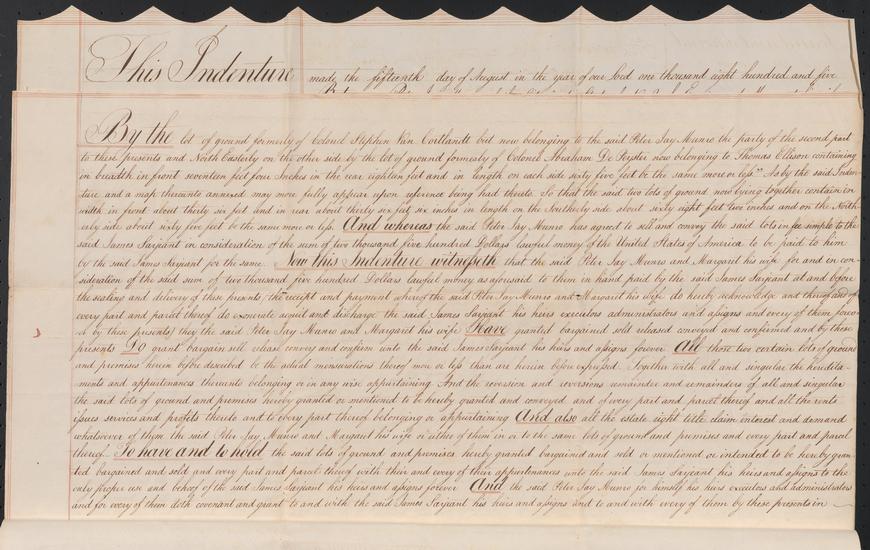 This Indenture made the fifteenth day of August in the year of our Lord one thousand eight hundred and five
By the lot of ground formerly of Colonel Stephen Van Cortlandt but now belonging to the said Peter Jay Munro the party of the second part
to these presents and North Easterly on the other side by the lot of ground formerly of Colonel Abraham De Peyster now belonging to Thomas Ellison containing
in breadth in front seventeen feet four Inches in the rear eighteen feet and in length on each side sixty five feet be the same more or less." As by the said Inden-
ture and a map thereunto annexed may more fully appear upon reference being had thereto. So that the said two lots of ground now lying together contain in
width in front about thirty six feet and in rear about thirty six feet six inches in length on the Southerly side about sixty eight feet two inches and on the North-
erly side about sixty five feet be the same more or less. And whereas the said Peter Jay Munro has agreed to sell and convey the said lots in fee simple to the
said James Sarjeant in consideration of the sum of two thousand five hundred Dollars lawful money of the United States of America to be paid to him
by the said James Sarjeant for the same. Now this Indenture witnesseth that the said Peter Jay Munro and Margaret his wife for and in con-
sideration of the said sum of two thousand five hundred Dollars lawful money as aforesaid to them in hand paid by the said James Sarjeant at and before
the sealing and delivery of these presents, the receipt and payment whereof the said Peter Jay Munro and Margaret his wife do hereby acknowledge and thereof and of
every part and parcel thereof do exonerate acquit and discharge the said James Sarjeant his heirs executors administrators and assigns and every of them forev-
er by these presents) they the said Peter Jay Munro and Margaret his wife Have granted bargained sold released conveyed and confirmed and by these
presents Do grant bargain sell release convey and confirm unto the said James Sarjeant his heirs and assigns forever All those two certain lots of ground
and premises herein before described be the actual mensurations thereof more or less than are herein before expressed. Together with all and singular the heredita-
ments and appurtenances thereunto belonging or in any wise appertaining And the reversion and reversions remainder and remainders of all and singular
the said lots of ground and premises hereby granted or mentioned to be hereby granted and conveyed and of every part and parcel thereof and all the rents
issues services and profits thereto and to every part thereof belonging or appertaining And also all the estate right title claim interest and demand
whatsoever of them the said Peter Jay Munro and Margaret his wife or either of them in or to the same lots of ground and premises and every part and parcel
thereof. To have and to hold the said lots of ground and premises hereby granted bargained and sold or mentioned or intended to be hereby gran-
ted bargained and sold and every part and parcel thereof with their and every of their appurtenances unto the said James Sarjeant his heirs and assigns to the
only proper use and behoof of the said James Sarjeant his heirs and assigns forever And the said Peter Jay Munro for himself his heirs executors and administrators
and for every of them doth covenant and grant to and with the said James Sarjeant his heirs and assigns and to and with every of them by these presents in